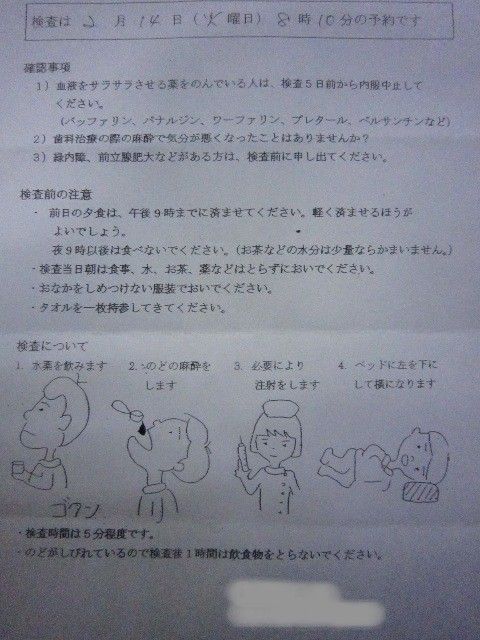 検査は 2 月 14 日(火曜日) 8 時 10 分の予約です
確認事項
1)血液をサラサラさせる薬をのんでいる人は、検査5日前から内服中止して
ください。
(バッファリン、パナルジン、ワーファリン、プレタール、ペルサンチンなど)
2)歯科治療の際の麻酔で気分が悪くなったことはありませんか?
3)緑内障、前立腺肥大などがある方は、検査前に申し出てください。
検査前の注意
・ 前日の夕食は、午後9時までに済ませてください。軽く済ませるほうが
よいでしょう。
夜9時以後は食べないでください。(お茶などの水分は少量ならかまいません。)
・検査当日朝は食事、水、お茶、薬などはとらずにおいでください。
・おなかをしめつけない服装でおいでください。
・タオルを一枚持参してきてください。
検査について
1. 水薬を飲みます 2. のどの麻酔を 3. 必要により 4. ベッドに左を下に
します 注射をします して横になります
ゴクン
・検査時間は5分程度です。
・のどがしびれているので検査後1時間は飲食物をとらないでください。